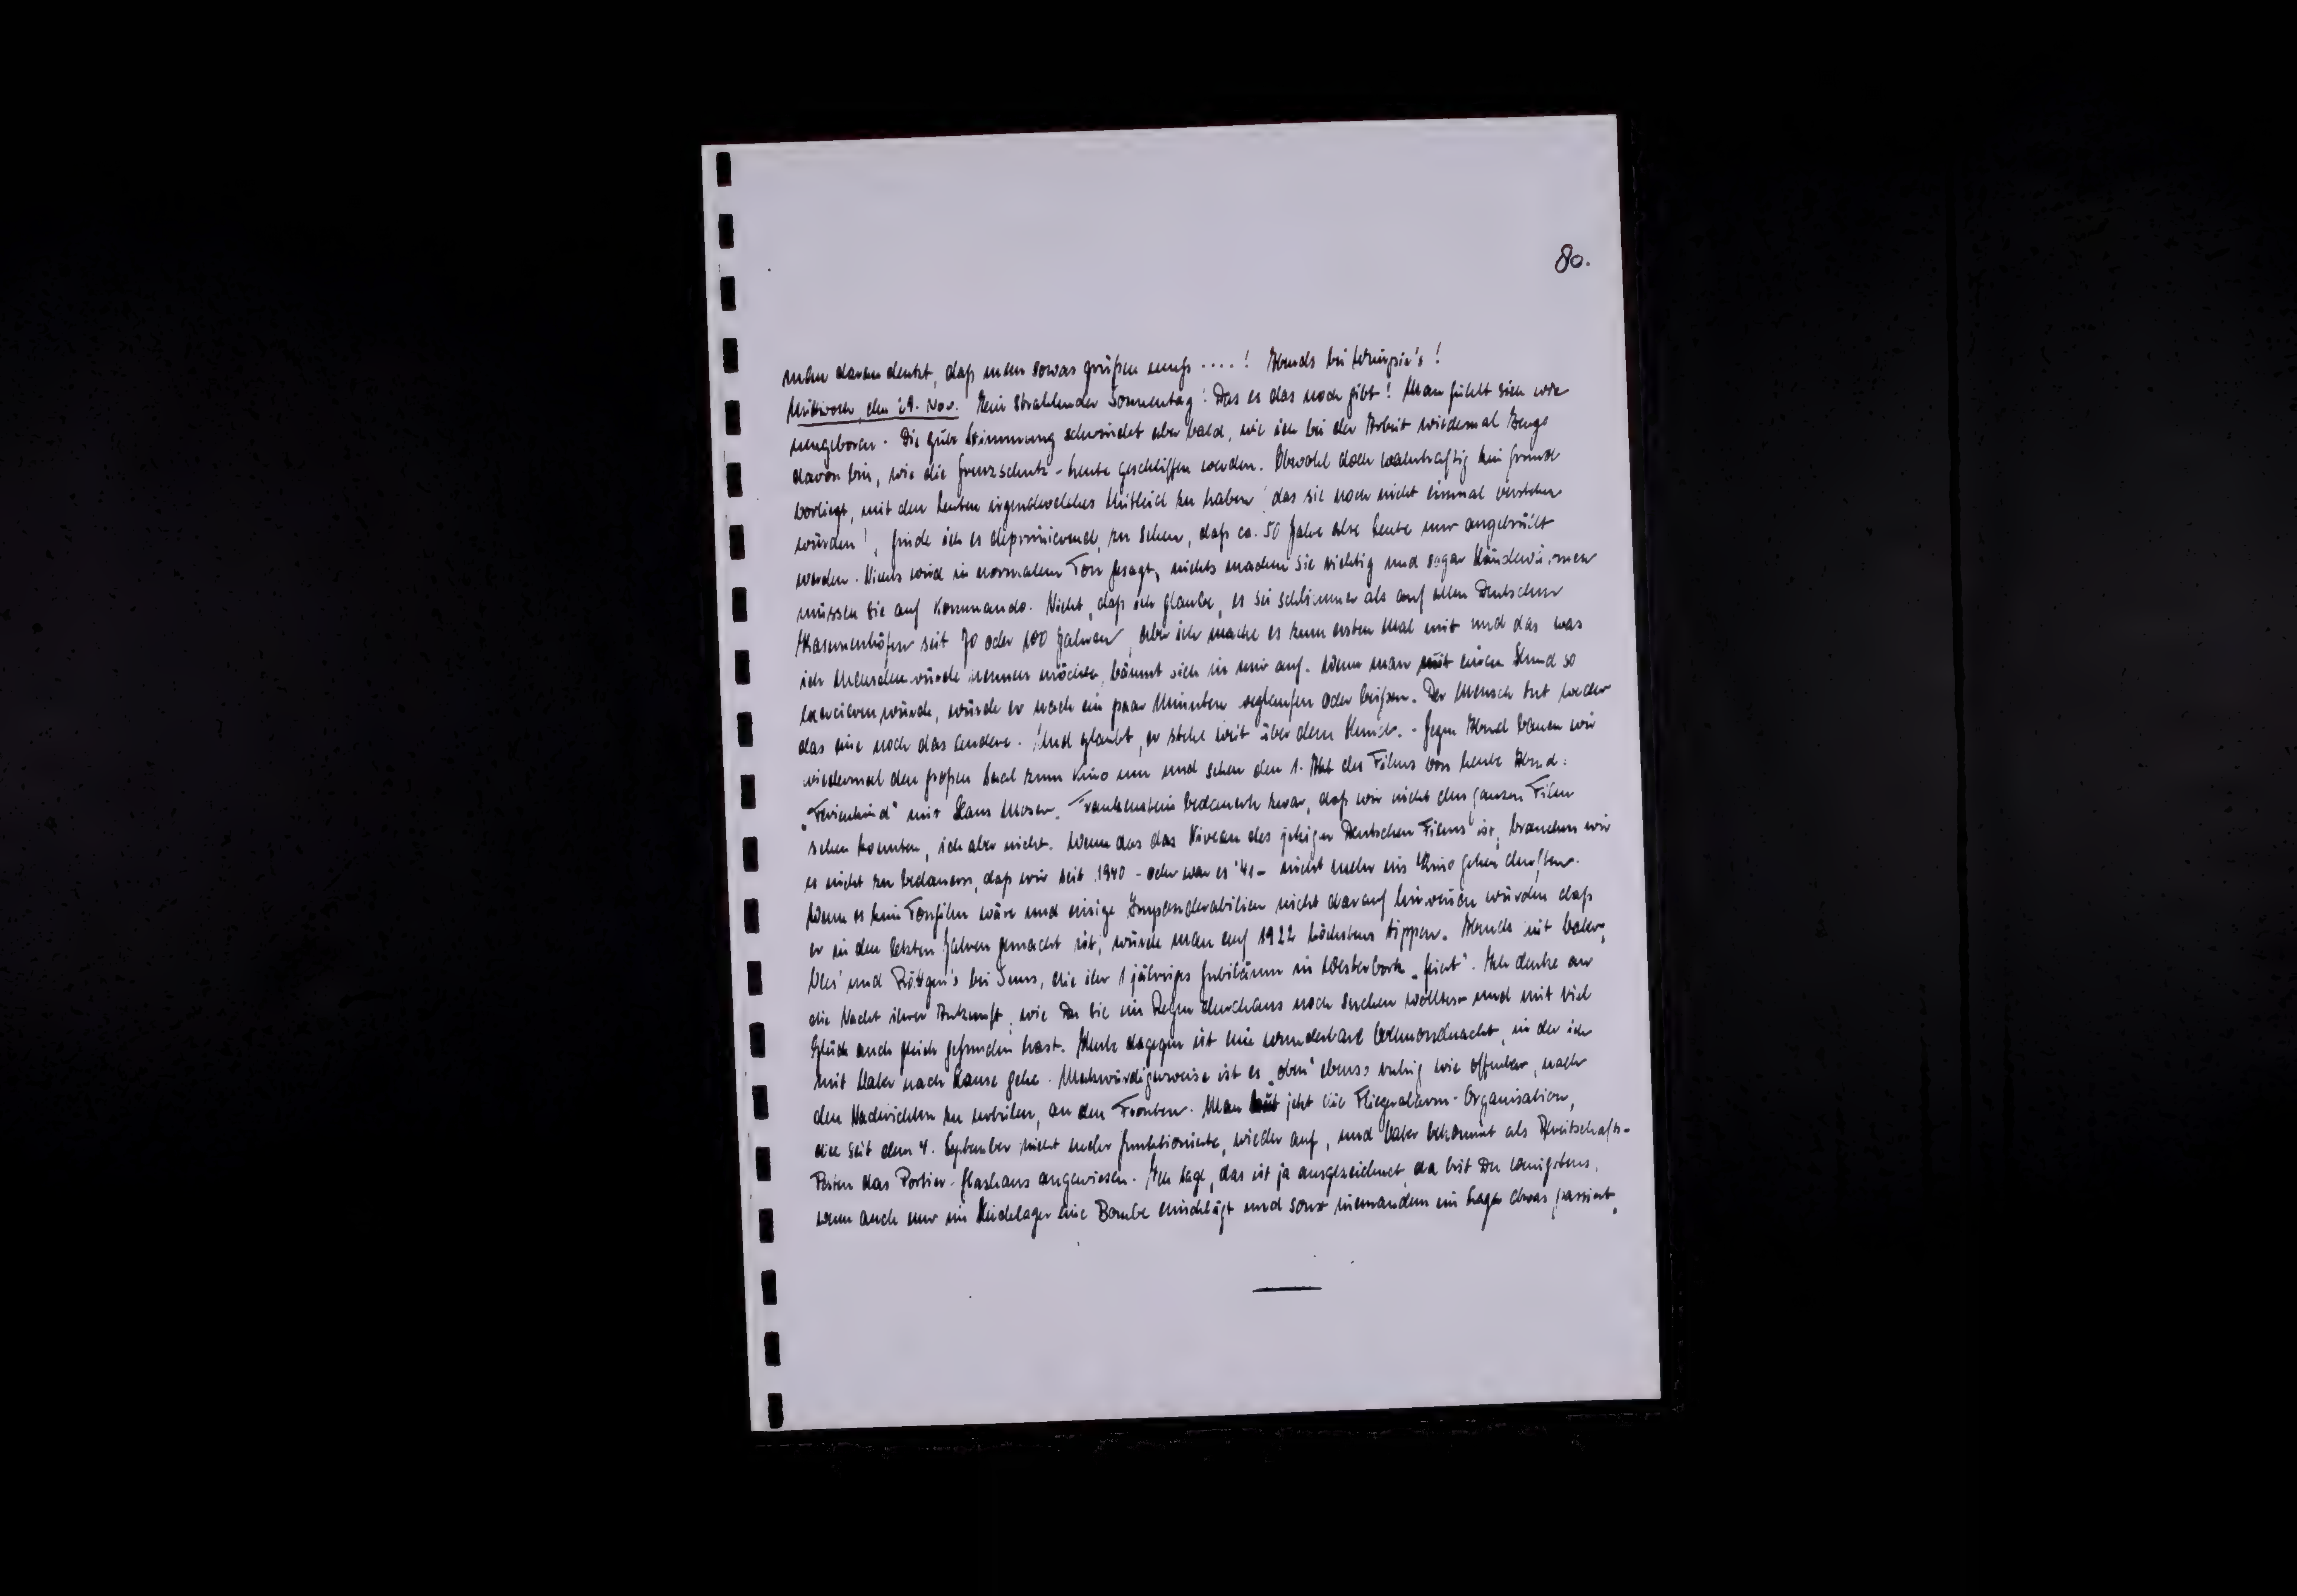 80.
man daran denkt, daß man sowas grüßen muß ....! Abends bei
Mittwoch, den 29. Nov. Ein strahlender Sonnentag! Das es das noch gibt! Man fühlt sich wie
neugeboren. Die gute Stimmung schwindet aber bald, wie ich bei der Arbeit wiedermal Zeuge
davon bin, wie die Grenzschutz-Leute geschliffen werden. Obwohl doch wahrhaftig kein Grund
vorliegt, mit den Leuten irgendwelches Mitleid zu haben, das sie noch nicht einmal verstehen
würden!, finde ich es deprimierend, zu sehen, daß ca. 50 Jahre alte Leute nur angebrüllt
werden. Nichts wird in normalem Ton gesagt, nichts machen sie richtig und sogar Händewärmen
müssen sie auf Kommando. Nicht, daß ich glaube, es sei schlimmer als auf allen Deutschen
Kasernenhöfen seit 70 oder 100 Jahren, aber ich mache es zum ersten Mal mit und das was
ich Menschenwürde nennen möchte, bäumt sich in mir auf. Wenn man mit einem Hund so
exercieren würde, würde er nach ein paar Minuten weglaufen oder beißen. Der Mensch tut weder
das eine noch das andere. Und glaubt, er stehe weit über dem Hund. - Gegen Abend bauen wir
wiedermal den großen Saal zum Kino um und sehen den 1. Akt des Films von heute Abend:
„Ferienkind" mit Hans Moser. Frankenstein bedauerte zwar, daß wir nicht den ganzen Film
sehen konnten, ich aber nicht. Wenn das das Niveau des jetzigen Deutschen Films ist, brauchen wir
es nicht zu bedauern, daß wir seit 1940 - oder war es '41 - nicht mehr ins Kino gehen durften.
Wenn es kein Tonfilm wäre und einige Imponderabilien nicht darauf hinweisen würden daß
er in den letzten Jahren gemacht ist, würde man auf 1922 höchstens tippen. Abends mit
und Röttgen's bei die ihr 1 jähriges Jubiläum in Westerbork „feiert". Ich denke an
die Nacht ihrer Ankunft, wie Du sie im Regen durchaus noch suchen wolltest und mit viel
Glück auch gleich gefunden hast. Heute dagegen ist eine wunderbare Vollmondnacht, in der ich
mit nach Hause gehe. Merkwürdigerweise ist es „oben" ebenso ruhig wie offenbar, nach
den Nachrichten zu urteilen, an den Fronten. Man baut jetzt die Fliegeralarm-Organisation,
die seit dem 4. September nicht mehr funktionierte, wieder auf, und bekommt als Bereitschafts-
Posten das Portier-Glashaus angewiesen. Ich sage, das ist ja ausgezeichnet, da bist Du wenigstens,
wenn auch nur im eine Bombe einschlägt und sonst niemandem im Lager etwas passiert,